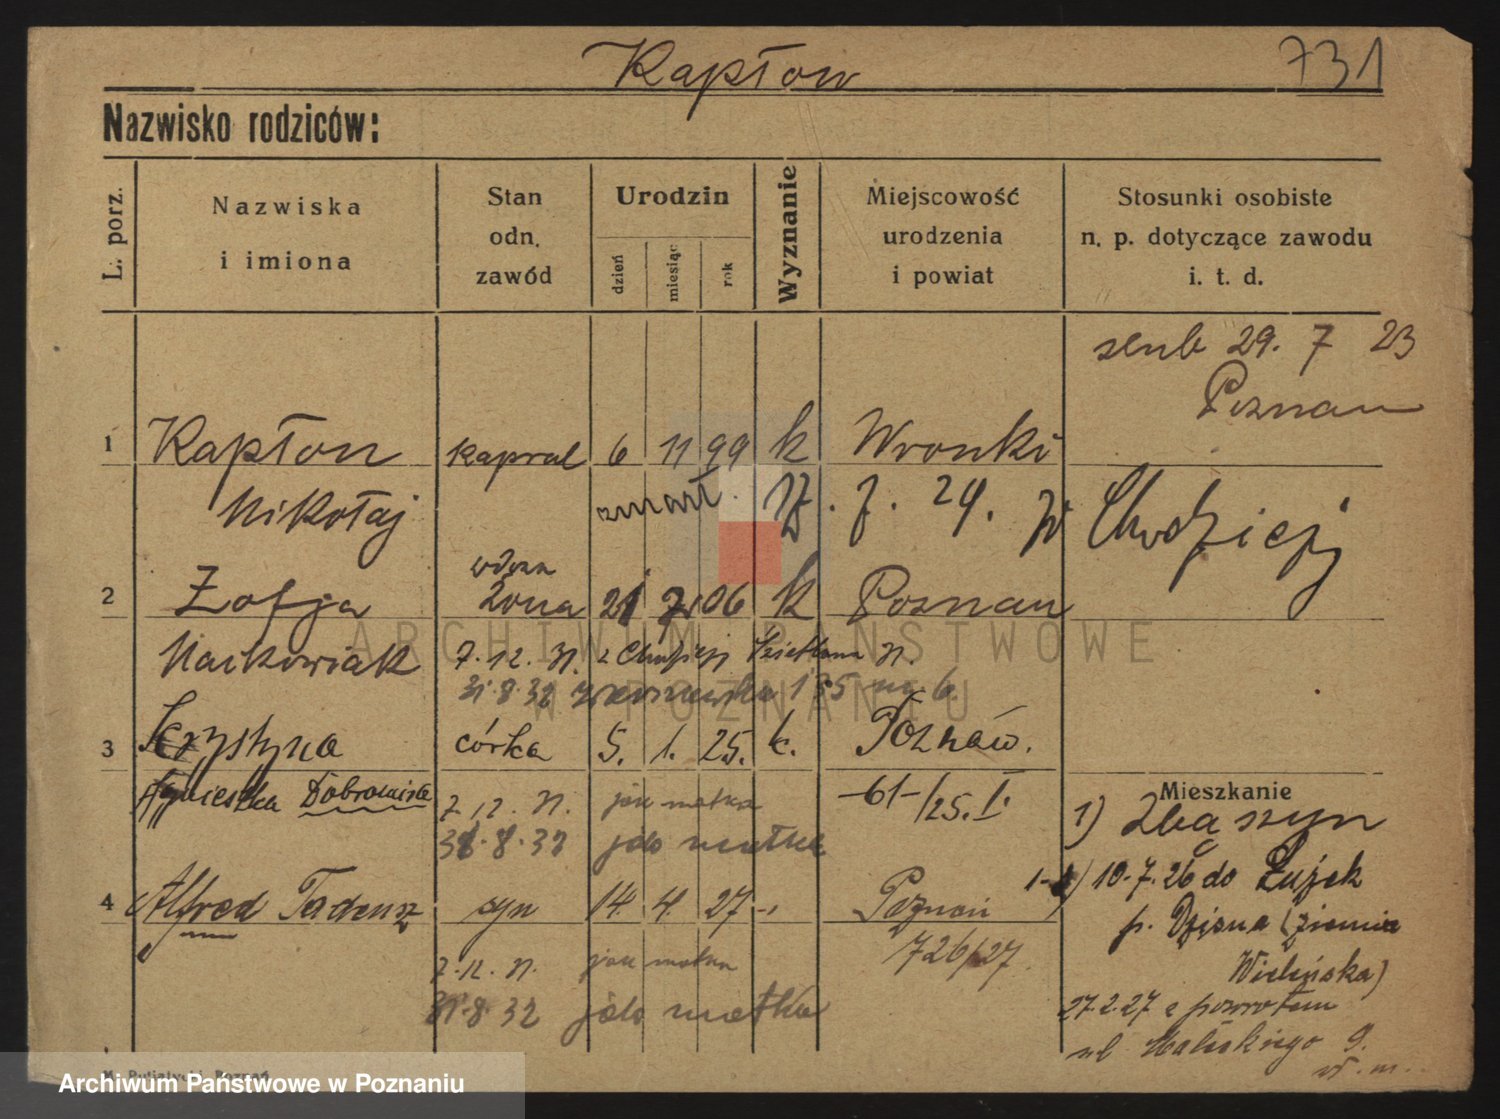 Kapłon
731
Nazwisko rodziców:
L. porz.
Nazwiska
i imiona
Stan
odn.
zawód
Urodzin
dzień
miesiąc
rok
Wyznanie
Miejscowość
urodzenia
i powiat
Stosunki osobiste
n. p. dotyczące zawodu
i. t. d.
29. 7 23
Poznan
1 Kapłon kapral 6 11 99 k Wronki
Nikołaj zmarł. 17. 7. 29. w Chodzieży
wdowa
2 Zofja żona 21 7 06 k Poznan
Maikowiak 7. 12. 31. z Chodzieży
31. 8. 32
ARCHIWUM PAŃSTWOWE
W POZNANIU
3 Krystyna córka 5. 1. 25. k. Poznań.
Agnieszka Dobromiła 7. 12. 31. jak matka -61-/25. I.
31. 8. 32 jako matka
Mieszkanie
1) Zbąszyn
4 Alfred Tadeusz syn 14. 4. 27 -„ Poznań
726/27.
7. 12. 31. jak matka
31. 8. 32 jako matka
10-7. 26 do Łużek
p. Dzisna (ziemia
Wileńska)
27. 2. 27 z powrotem
ul Maleckiego 9.
M. Putiatycki Poznań
Archiwum Państwowe w Poznaniu